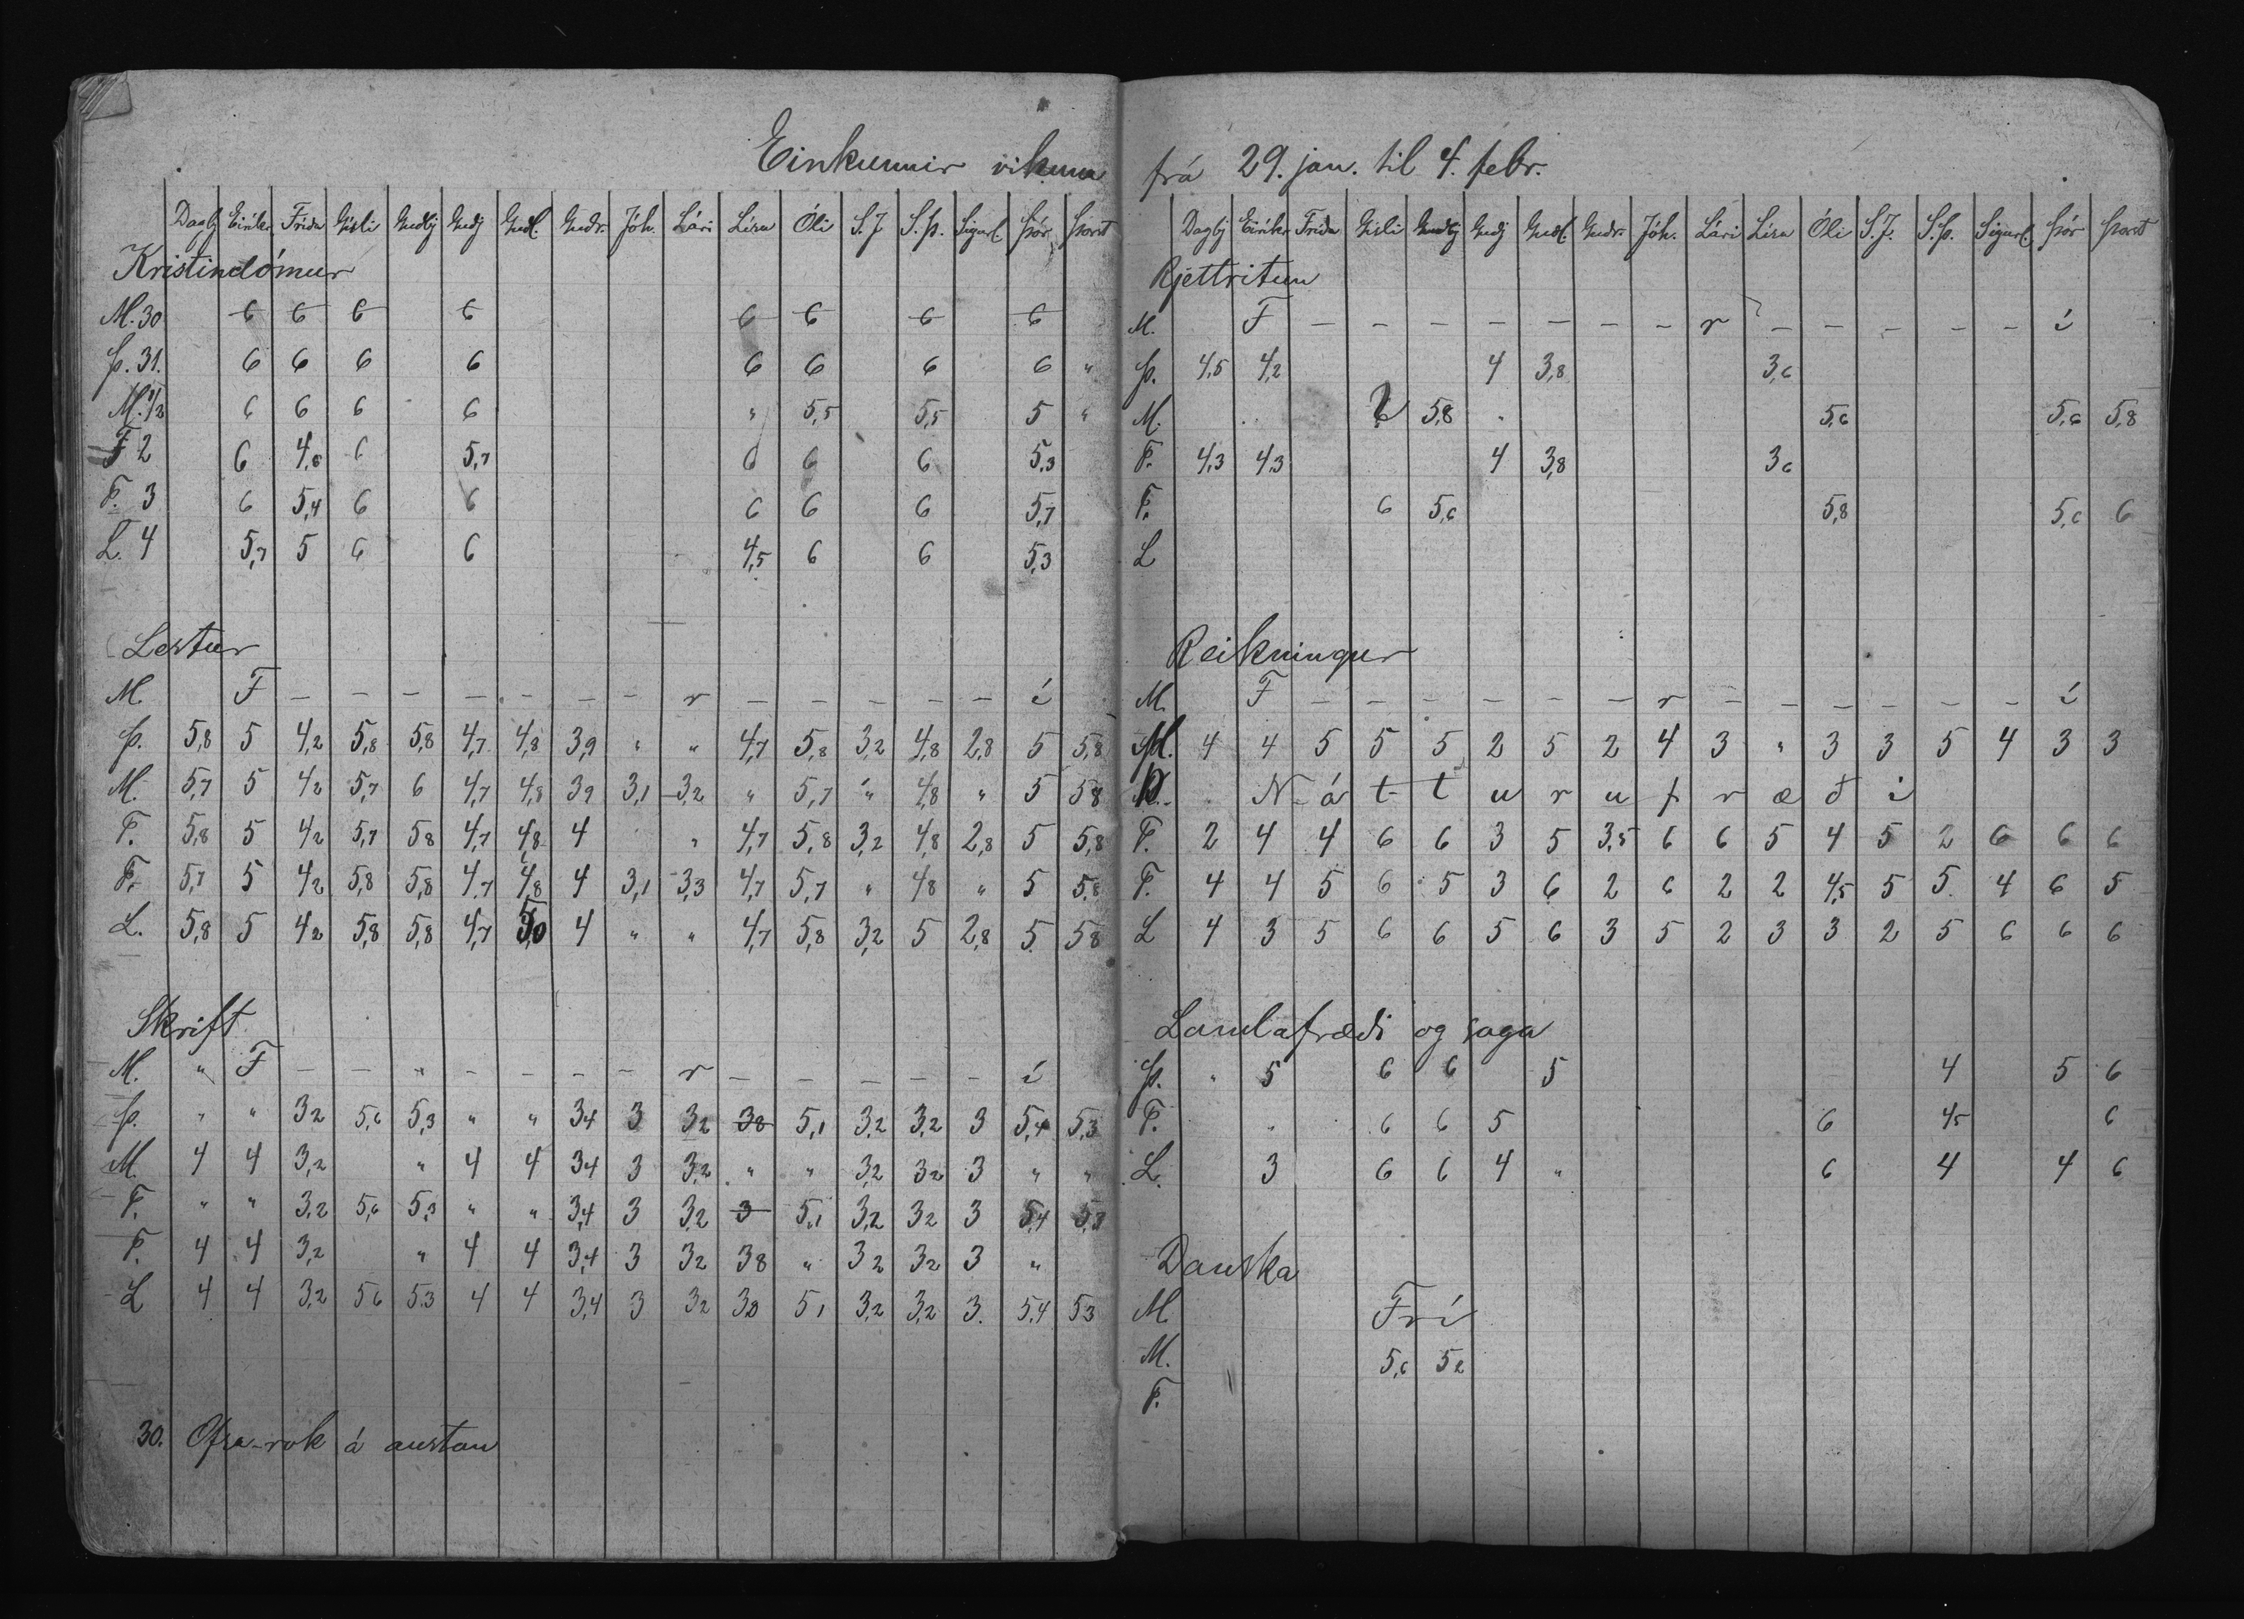 Einkunnir vikuna
Dagbj Eiríkr Fríða Gísli Guðbj Guðj Guðl. Guðr. Jóh. Lári Lísa Óli S.J S.Þ. Sigurl. Þór Þorst
Kristindómur
M. 30 6 6 6 6 6 6 6 6
Þ. 31. 6 6 6 6 6 6 6 6 "
M. 1/2 6 6 6 6 " 5,5 5,5 5 "
F 2 6 4,6 6 5,7 6 6 6 5,3
F. 3 6 5,4 6 6 6 6 6 5,7
L. 4 5,7 5 6 6 4,5 6 6 5,3
Lestur
M F – – – – – – – r – – – – – í
Þ. 5,8 5 4,2 5,8 5,8 4,7 4,8 3,9 " " 4,7 5,8 3,2 4,8 2,8 5 5,8
M. 5,7 5 4,2 5,7 6 4,7 4,8 3,9 3,1 3,2 " 5,7 " 4,8 " 5 5,8
F. 5,8 5 4,2 5,7 5,8 4,7 4,8 4 " 4,7 5,8 3,2 4,8 2,8 5 5,8
F. 5,7 5 4,2 5,8 5,8 4,7 4,8 4 3,1 3,3 4,7 5,7 " 4,8 " 5 5,8
L. 5,8 5 4,2 5,8 5,8 4,7 5,0 4 " " 4,7 5,8 3,2 5 2,8 5 5,8
Skrift
M. " F – – " – – – – r – – – – – í
Þ. " " 3,2 5,6 5,3 " " 3,4 3 3,2 3,8 5,1 3,2 3,2 3 5,4 5,3
M. 4 4 3,2 " 4 4 3,4 3 3,2 " " 3,2 3,2 3 " "
F. " " 3,2 5,6 5,3 " " 3,4 3 3,2 3 5,1 3,2 3,2 3 5,4 5,3
F. 4 4 3,2 " 4 4 3,4 3 3,2 3,8 " 3,2 3,2 3 "
L 4 4 3,2 5,6 5,3 4 4 3,4 3 3,2 3,8 5,1 3,2 3,2 3. 5,4 5,3
30. Ofsa-rok á austan
frá 29. jan. til 4. febr.
Dagbj Eiríkr Fríða Gísli Guðbj Guðj Guðl. Guðr. Jóh. Lári Lísa Óli S.J. S.Þ. Sigurl. Þór Þorst
Rjettritun
M. F – – – – – – – r – – – – – í
Þ. 4,5 4,2 4 3,8 3,6
M. 6 5,8 " 5,6 5,6 5,8
F. 4,3 4,3 4 3,8 3,6
F. 6 5,6 5,8 5,6 6
L
Reikningur
M. F – – – – – – r – – – – – – í
M. 4 4 5 5 5 2 5 2 4 3 " 3 3 5 4 3 3
Þ. N á t t u r u f r æ ð i
F. 2 4 4 6 6 3 5 3,5 6 6 5 4 5 2 6 6 6
F. 4 4 5 6 5 3 6 2 6 2 2 4,5 5 5 4 6 5
L 4 3 5 6 6 5 6 3 5 2 3 3 2 5 6 6 6
Landafræði og saga
Þ. " 5 6 6 5 4 5 6
F. " 6 6 5 6 4,5 6
L. 3 6 6 4 " 6 4 4 6
Danska
M Frí
M. 5,6 5,2
F.